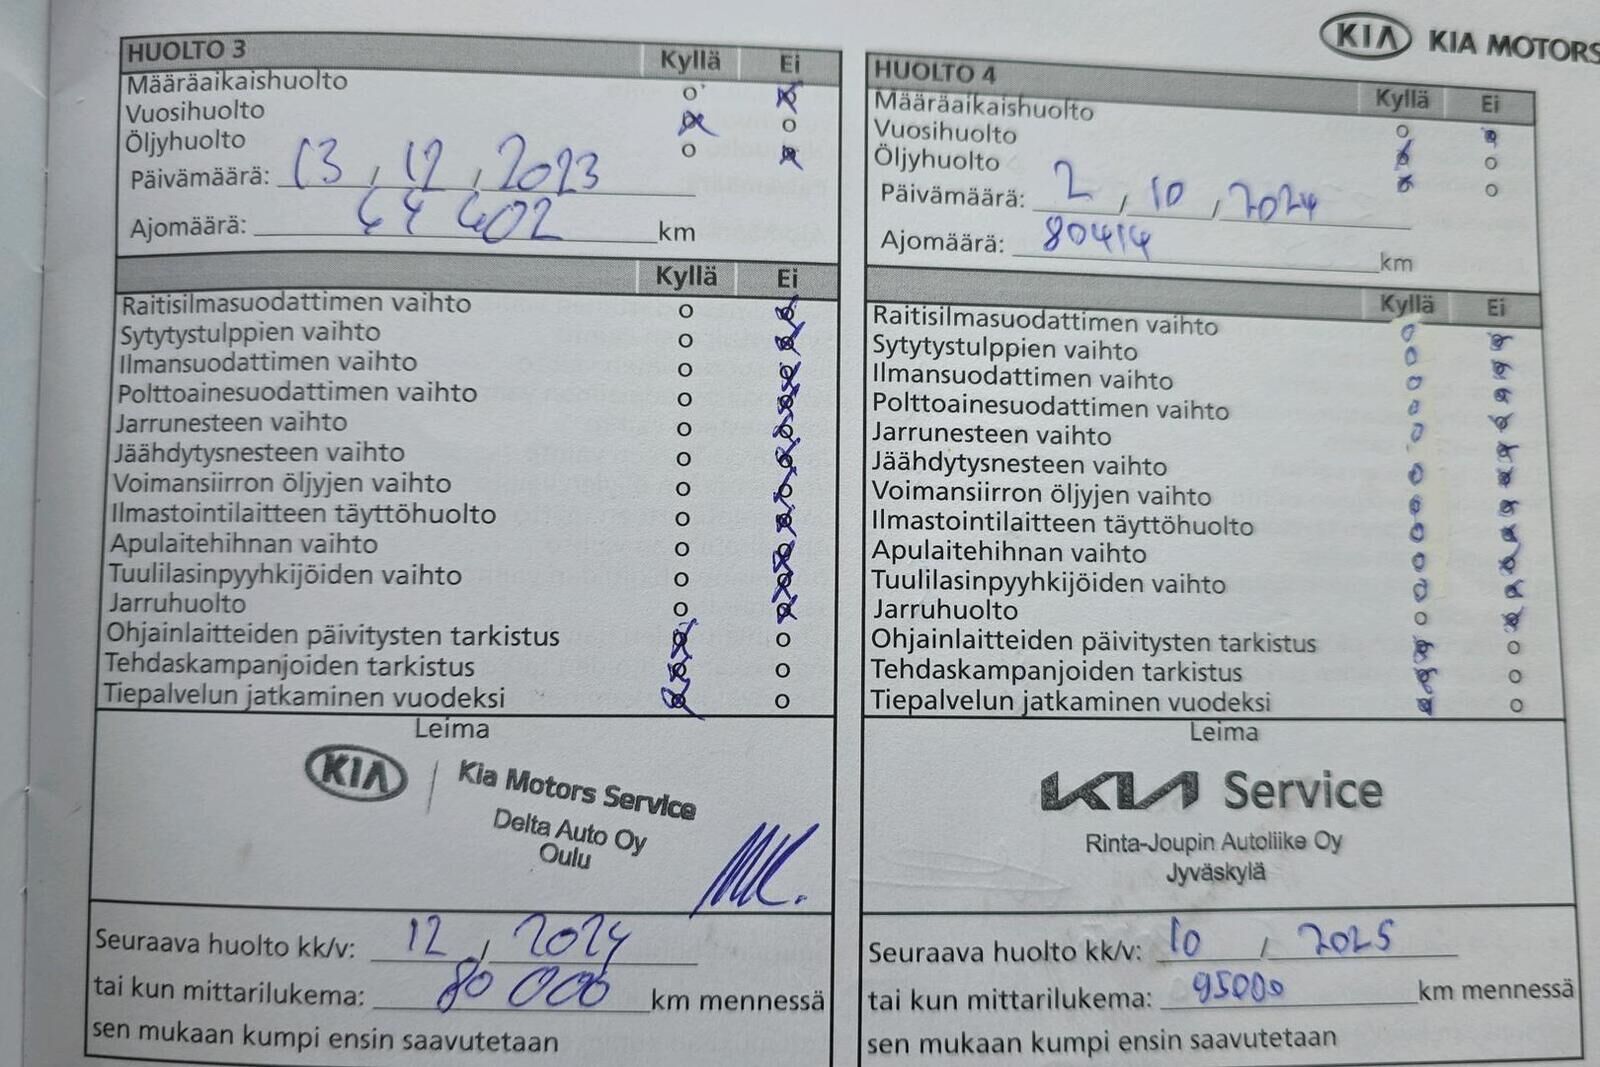 KIA KIA MOTORS
HUOLTO 3 Kyllä Ei
Määräaikaishuolto o o
Vuosihuolto o o
Öljyhuolto o o
Päivämäärä: 13 , 12 , 2023
Ajomäärä: 64 402 km
Kyllä Ei
Raitisilmasuodattimen vaihto o o
Sytytystulppien vaihto o o
Ilmansuodattimen vaihto o o
Polttoainesuodattimen vaihto o o
Jarrunesteen vaihto o o
Jäähdytysnesteen vaihto o o
Voimansiirron öljyjen vaihto o o
Ilmastointilaitteen täyttöhuolto o o
Apulaitehihnan vaihto o o
Tuulilasinpyyhkijöiden vaihto o o
Jarruhuolto o o
Ohjainlaitteiden päivitysten tarkistus o o
Tehdaskampanjoiden tarkistus o o
Tiepalvelun jatkaminen vuodeksi o o
Leima
KIA Kia Motors Service
Delta Auto Oy
Oulu
Seuraava huolto kk/v: 12 / 2024
tai kun mittarilukema: 80 000 km mennessä
sen mukaan kumpi ensin saavutetaan
HUOLTO 4 Kyllä Ei
Määräaikaishuolto o o
Vuosihuolto o o
Öljyhuolto o o
Päivämäärä: 2 , 10 , 2024
Ajomäärä: 80414 km
Kyllä Ei
Raitisilmasuodattimen vaihto o o
Sytytystulppien vaihto o o
Ilmansuodattimen vaihto o o
Polttoainesuodattimen vaihto o o
Jarrunesteen vaihto o o
Jäähdytysnesteen vaihto o o
Voimansiirron öljyjen vaihto o o
Ilmastointilaitteen täyttöhuolto o o
Apulaitehihnan vaihto o o
Tuulilasinpyyhkijöiden vaihto o o
Jarruhuolto o o
Ohjainlaitteiden päivitysten tarkistus o o
Tehdaskampanjoiden tarkistus o o
Tiepalvelun jatkaminen vuodeksi o o
Leima
KIA Service
Rinta-Joupin Autoliike Oy
Jyväskylä
Seuraava huolto kk/v: 10 / 2025
tai kun mittarilukema: 95000 km mennessä
sen mukaan kumpi ensin saavutetaan